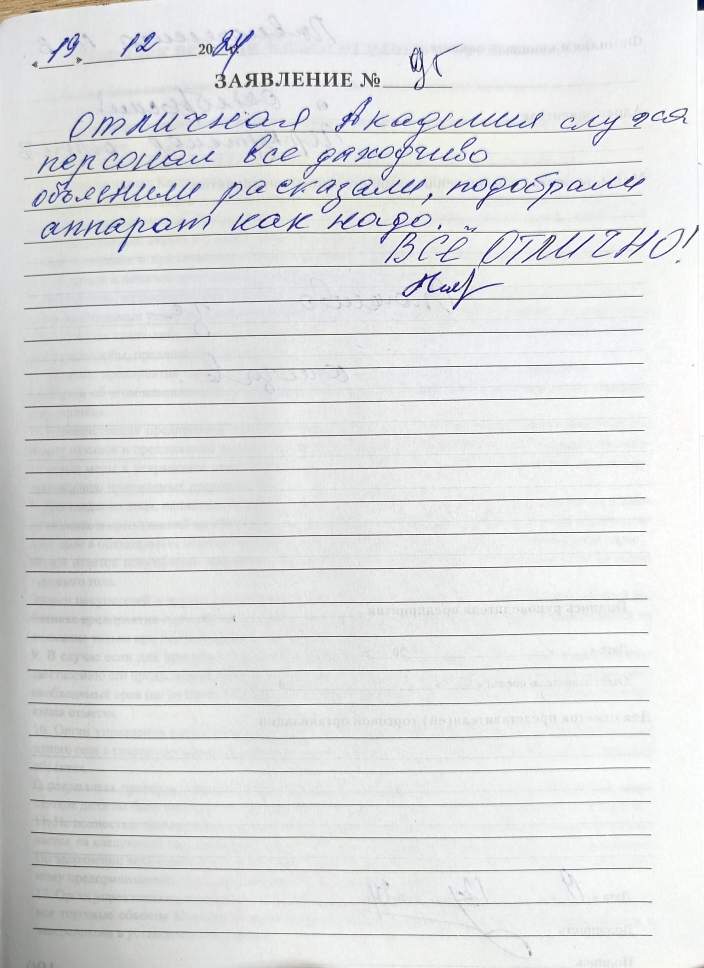 « 19 » 12 2024
ЗАЯВЛЕНИЕ № 95
Отличная Академия слуха
персонал все даходчиво
объяснили рассказали, подобрали
аппарат как надо.
ВСЁ ОТЛИЧНО!